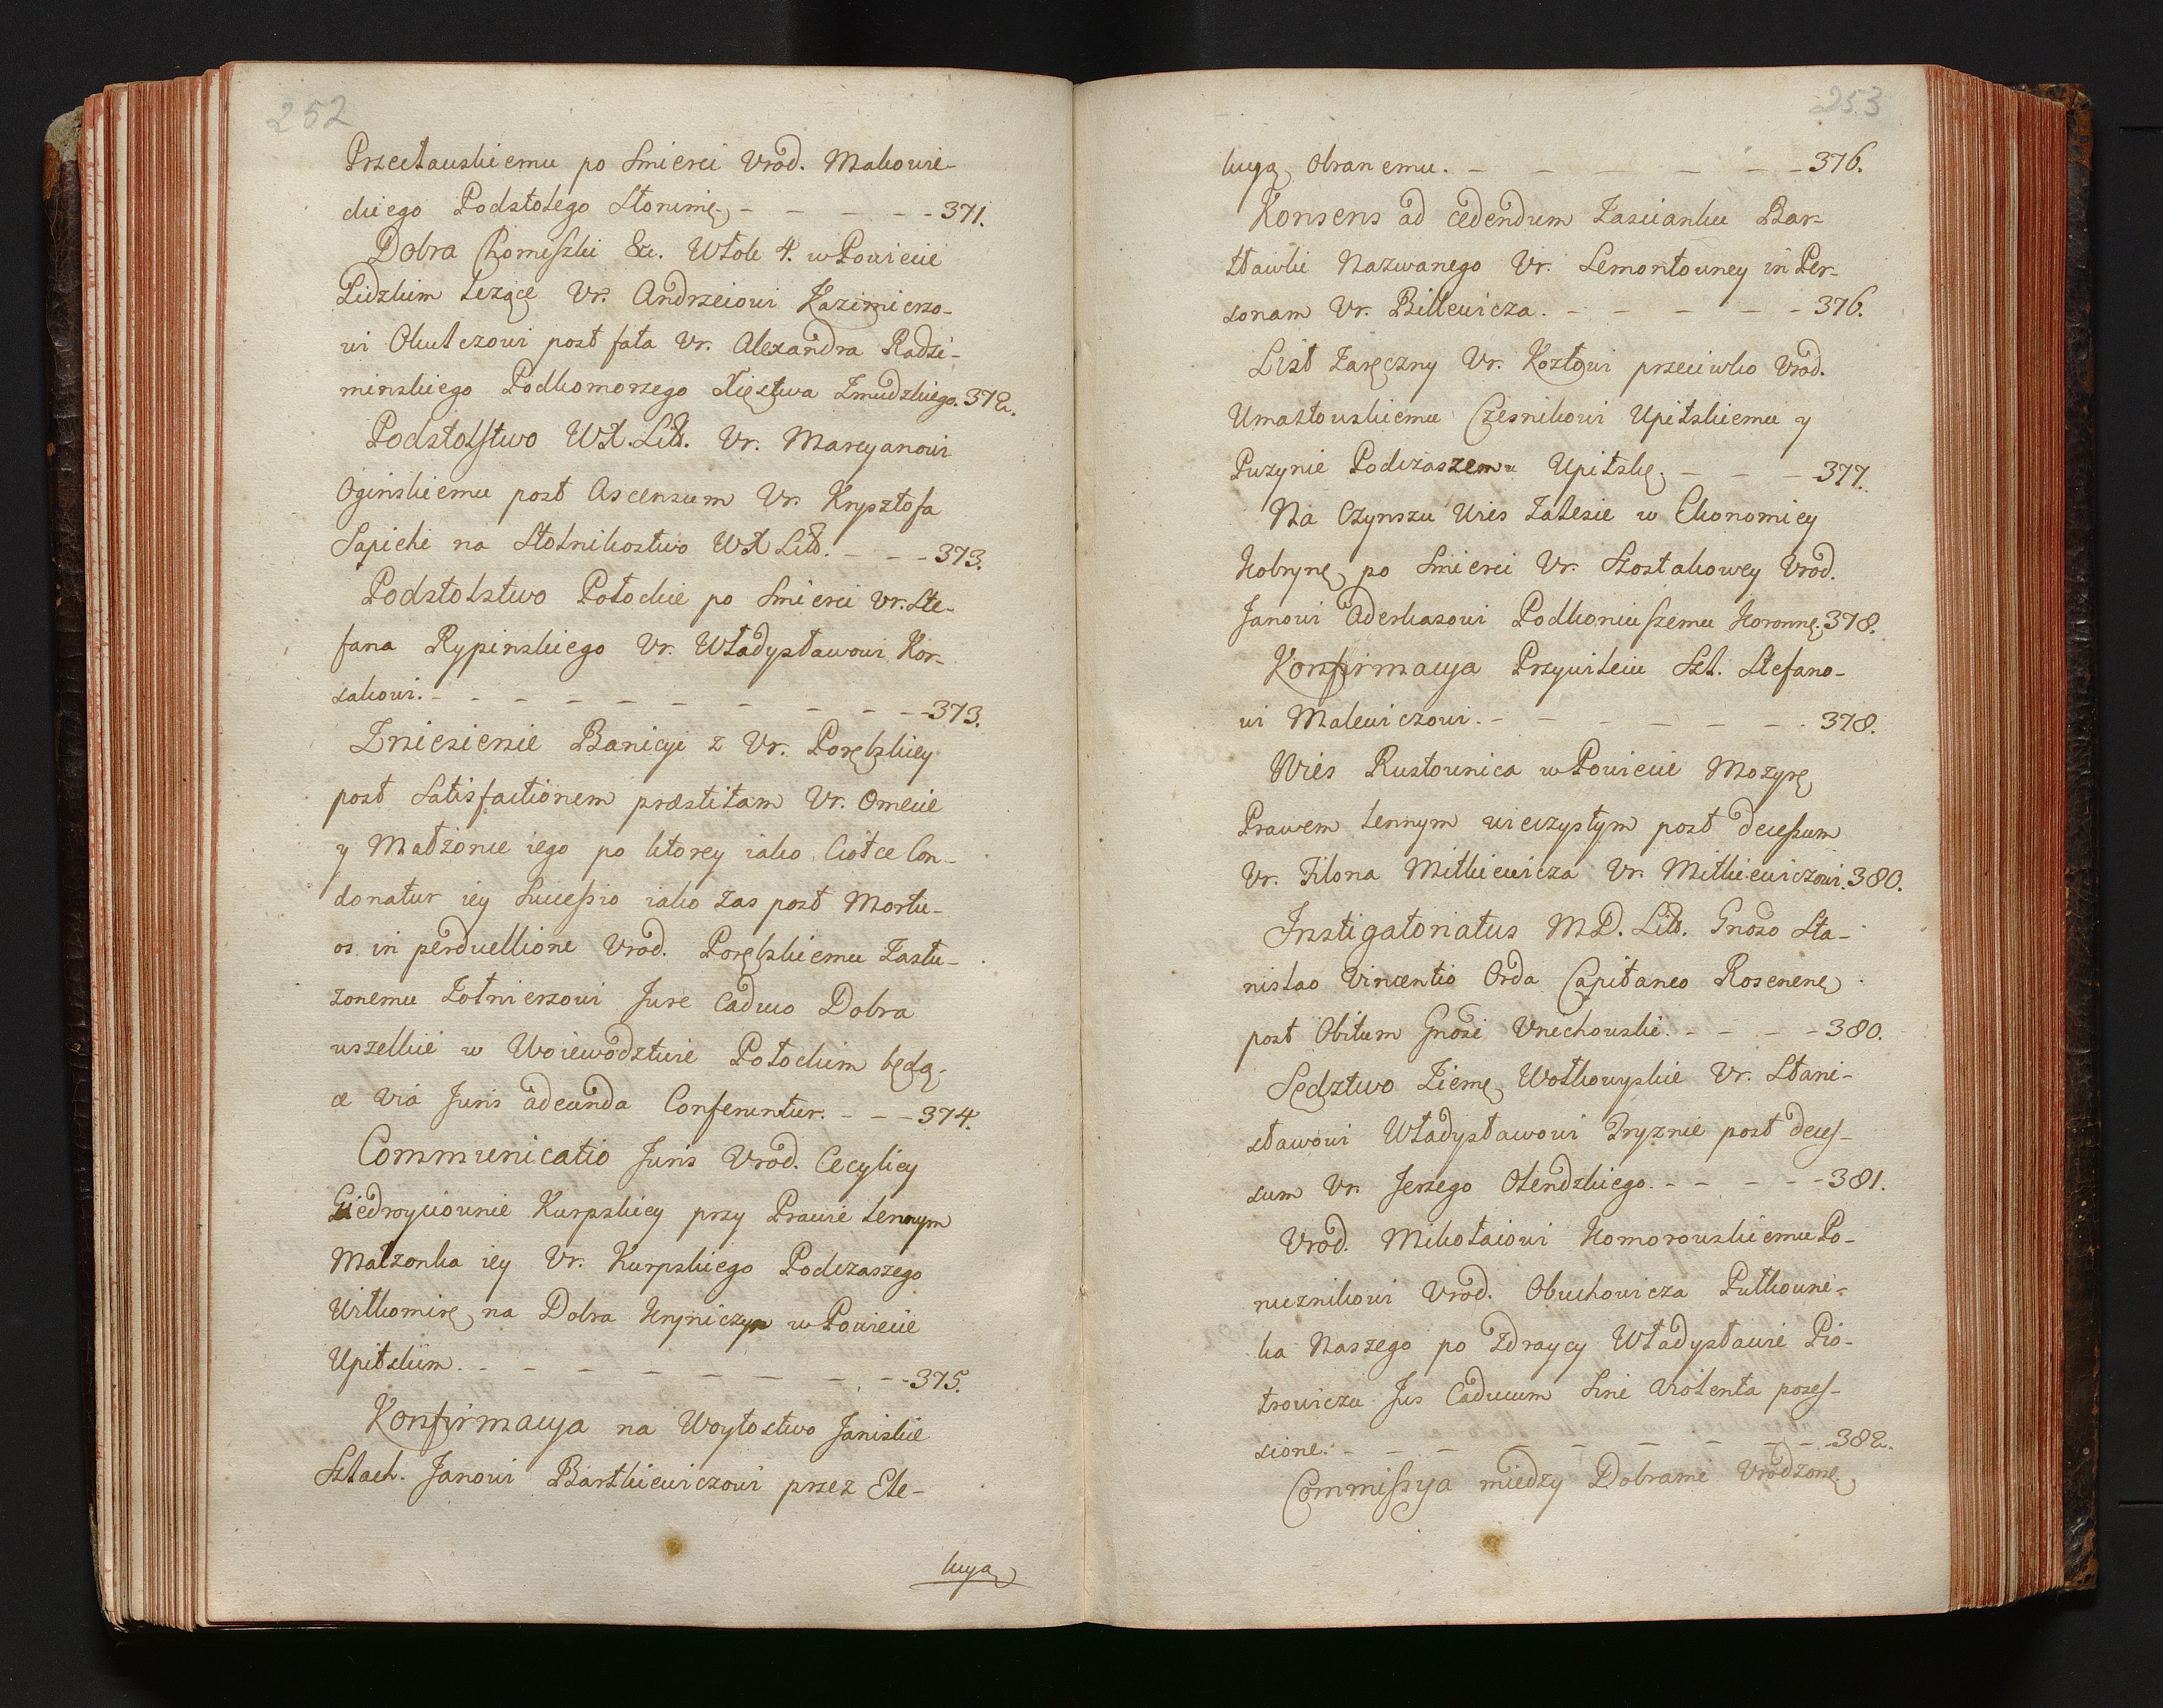 252
Przecławskiemu po Smierci Vrod. Makowie-
ckiego Podstolego Słonimę. - - - - - 371.
Dobra Chomiszki &c. Włok 4. w Powiecie
Lidzkim leząće Vr. Andrzeiowi Kazimierzo-
wi Okulczowi post fata Vr. Alexandra Radzi-
minskiego Podkomorzego Xięstwa Zmudzkiego. 372.
Podstolstwo WX. Litt. Vr. Marcyanowi
Oginskiemu post Ascensum Vr. Krysztofa
Sapiehi na Stolnikostwo WX Litt. - - - 373.
Podstolstwo Połockie po Smierci Vr. Ste-
fana Rypinskiego Vr. Władysławowi Kor-
sakowi. - - - - - - - - - - 373.
Zniesienie Banicyi z Vr. Porębskiey
post Satisfactionem præstitam Vr. Omecie
y Małżonce iego po ktorey iako Ciotce Con-
donatur iey Successio iako zas post Mortu-
os in perduellione Vrod. Porębskiemu Zasłu-
zonemu Zołnierzowi Jure Caduco Dobra
wszelkie w Woiewodztwie Połockim będą-
ce via Juris adeunda Conferuntur. - - - 374.
Communicatio Juris Vrod. Cecyliey
Giedroyciownie Kurpskiey przy Prawie lennym
Małzonka iey Vr. Kurpskiego Podczaszego
Wiłkomirę na Dobra Hryniczyn w Powiecie
Upitskim. - - - - - - - - - 375.
Konfirmacya na Woytostwo Janiskie
Szlach. Janowi Bartkiewiczowi przez Ele-
kcyą
253
kcyą Obranemu. - - - - - - - 376.
Konsens ad cedendum Zascianku Bar-
tławki Nazwanego Vr. Lemontowney in Per-
sonam Vr. Billewicza. - - - - - - 376.
List Zaręczny Vr. Kozłowi przeciwko Vrod.
Umastowskiemu Czesnikowi Upitskiemu y
Puzynie Podczaszemu Upitskę. - - - 377.
Na Czynszu Wies Zalesie w Ekonomiey
Kobrynę po Smierci Vr. Szostakowey Vrod.
Janowi Aderkasowi Podkoniuszemu Koronnę. 378.
Konfirmacya Przywileiu Szl. Stefano-
wi Malewiczowi. - - - - - - - 378.
Wies Rustownica w Powiecie Mozyrę
Prawem lennym wieczystym post decessum
Vr. Filona Mitkiewicza Vr. Mitkiewiczowi. 380.
Instigatoriatus MD. Litt. Gnoso Sta-
nislao Vincentio Orda Capitaneo Rosenenę
post Obitum Gnosi Vnechowski. - - - - 380.
Sędztwo Ziemę Wołkowyskie Vr. Stani-
sławowi Władysławowi Tryznie post deces-
sum Vr. Jerzego Olendzkiego. - - - - - 381.
Vrod. Mikołaiowi Komorowskiemu Po-
rucznikowi Vrod. Obuchowicza Pułkowni-
ka Naszego po Zdraycy Władysławie Pio-
trowiczu Jus Caducum Sine violenta poses-
sione. - - - - - - - - - 382.
Commissya miedzy Dobrami Vrodzonę